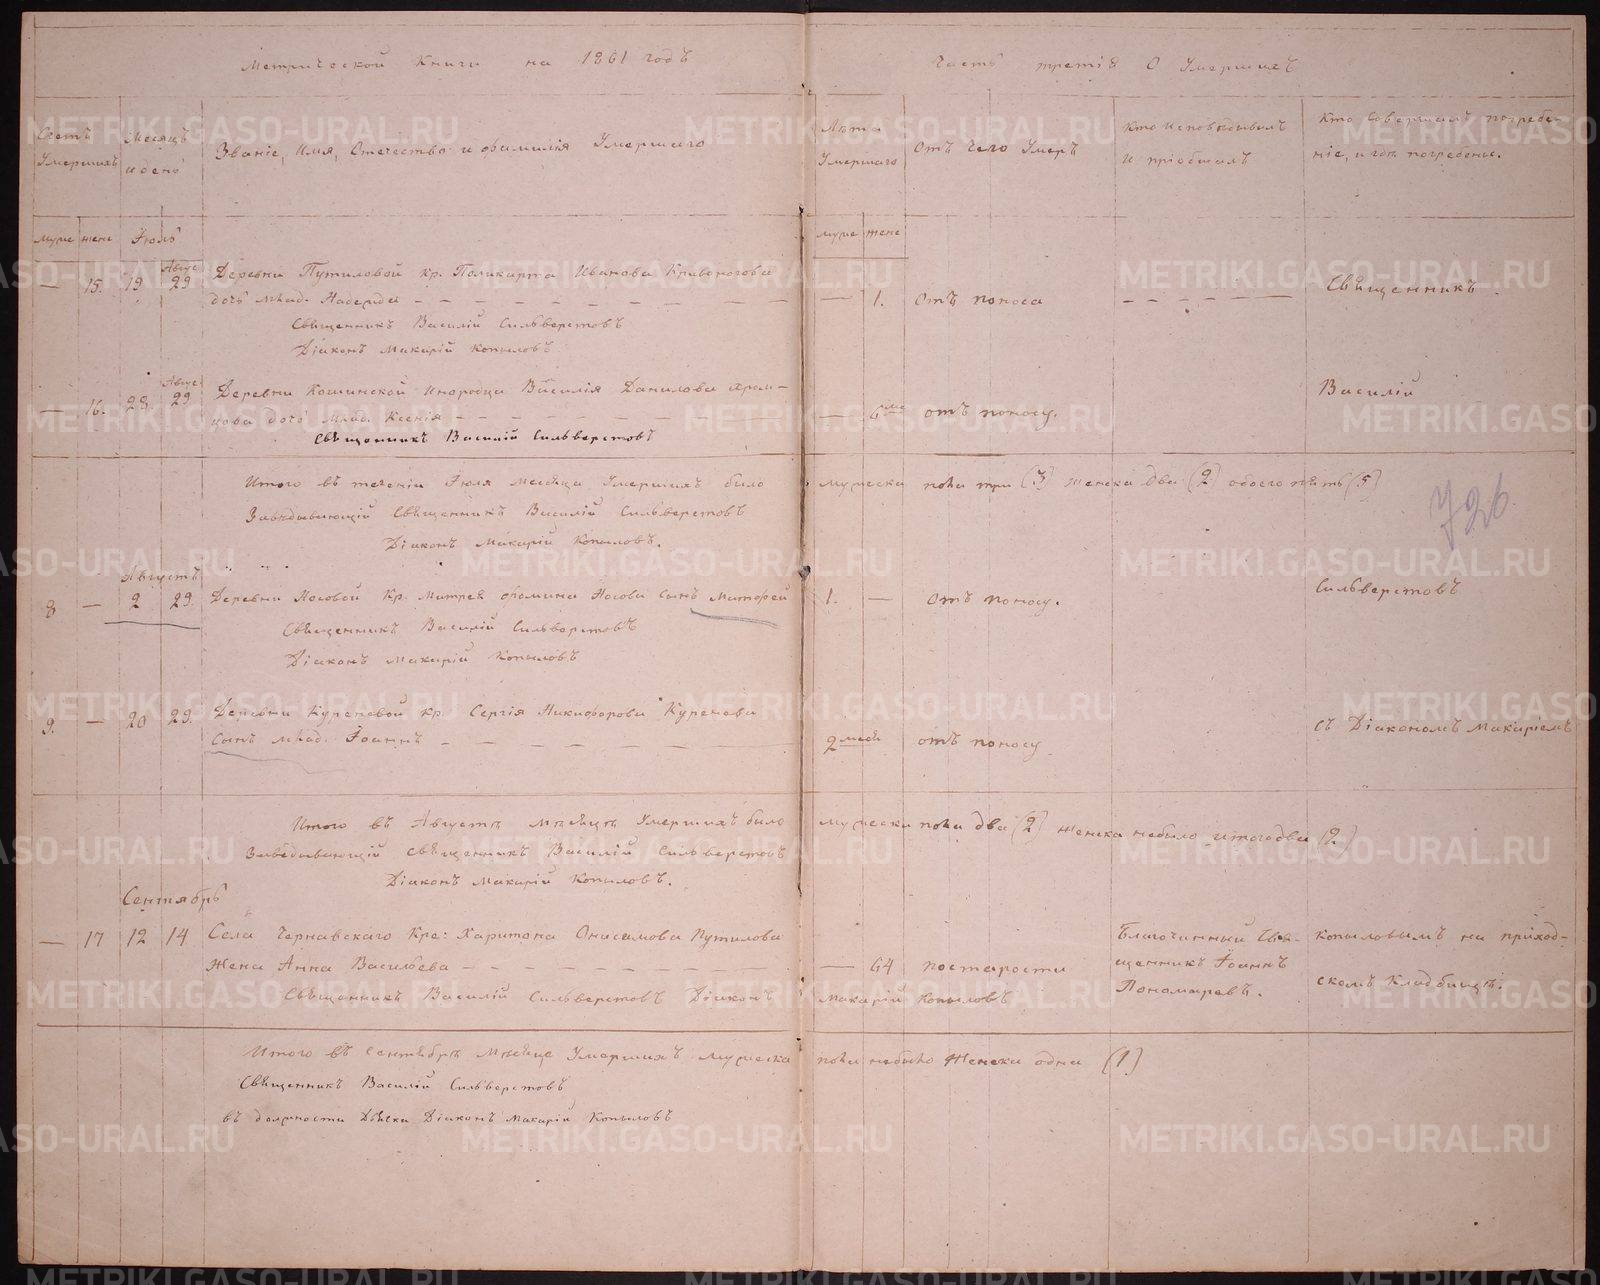 Метрической Книги на 1861 годъ
Часть третія О Умершихъ
Счетъ Умершихъ
Месяцъ и день
Званіе, Имя, Отчество и фамилія Умершаго
Лѣта Умершаго
Отъ чего Умеръ
Кто Исповѣдывалъ и пріобщалъ
Кто Совершалъ погребеніе, и гдѣ погребены.
муже жене Іюль
муже жене
Авгус
— 15. 19 29 Деревни Путиловой кр. Поликарпа Иванова Кривоногова
дочь млад. Надежда — 1. отъ поноса Священникъ
Священникъ Василій Сильверстовъ
Діаконъ Макарій Копыловъ
Авгус
— 16. 28. 29 Деревни Кошинской инородца Василія Данилова
дочь млад. Ксенія — 6 отъ поносу. Василій
Священникъ Василій Сильверстовъ
Итого въ теченіи Іюля месяца Умершихъ было мужеска пола три (3) женска два (2) обоего пять (5)
Завѣдывающій Священникъ Василій Сильверстовъ
726.
Діаконъ Макарій Копыловъ.
Августъ
8 — 2 29. Деревни Носовой кр. Митрея Фомина Носова сынъ Матфей 1. — отъ поносу. Сильверстовъ
Священникъ Василій Сильверстовъ
Діаконъ Макарій Копыловъ
9. — 20 29. Деревни Куреневой кр. Сергія Никифорова Куренева
сынъ млад. Іоаннъ 2 меся отъ поносу съ Діакономъ Макаріемъ
Итого въ Августѣ мѣсяцѣ Умершихъ было мужески пола два (2) женска небыло итого два (2)
Завѣдывающій священникъ Василій Сильверстовъ
Діаконъ Макарій Копыловъ.
Сентябрь
— 17 12 14 Села Чернавскаго Кре: Харитона Онисимова Путилова
жена Анна Васильева — 64 постарости
Благочинный Священникъ Іоаннъ Пономаревъ.
Копыловымъ на приходскомъ Кладбищѣ.
Священникъ Василій Сильверстовъ Діаконъ Макарій Копыловъ
Итого въ сентябрѣ мѣсяце Умершихъ мужеска пола небыло женска одна (1)
Священникъ Василій Сильверстовъ
въ должности Дьячка Діаконъ Макарій Копыловъ
METRIKI.GASO-URAL.RU